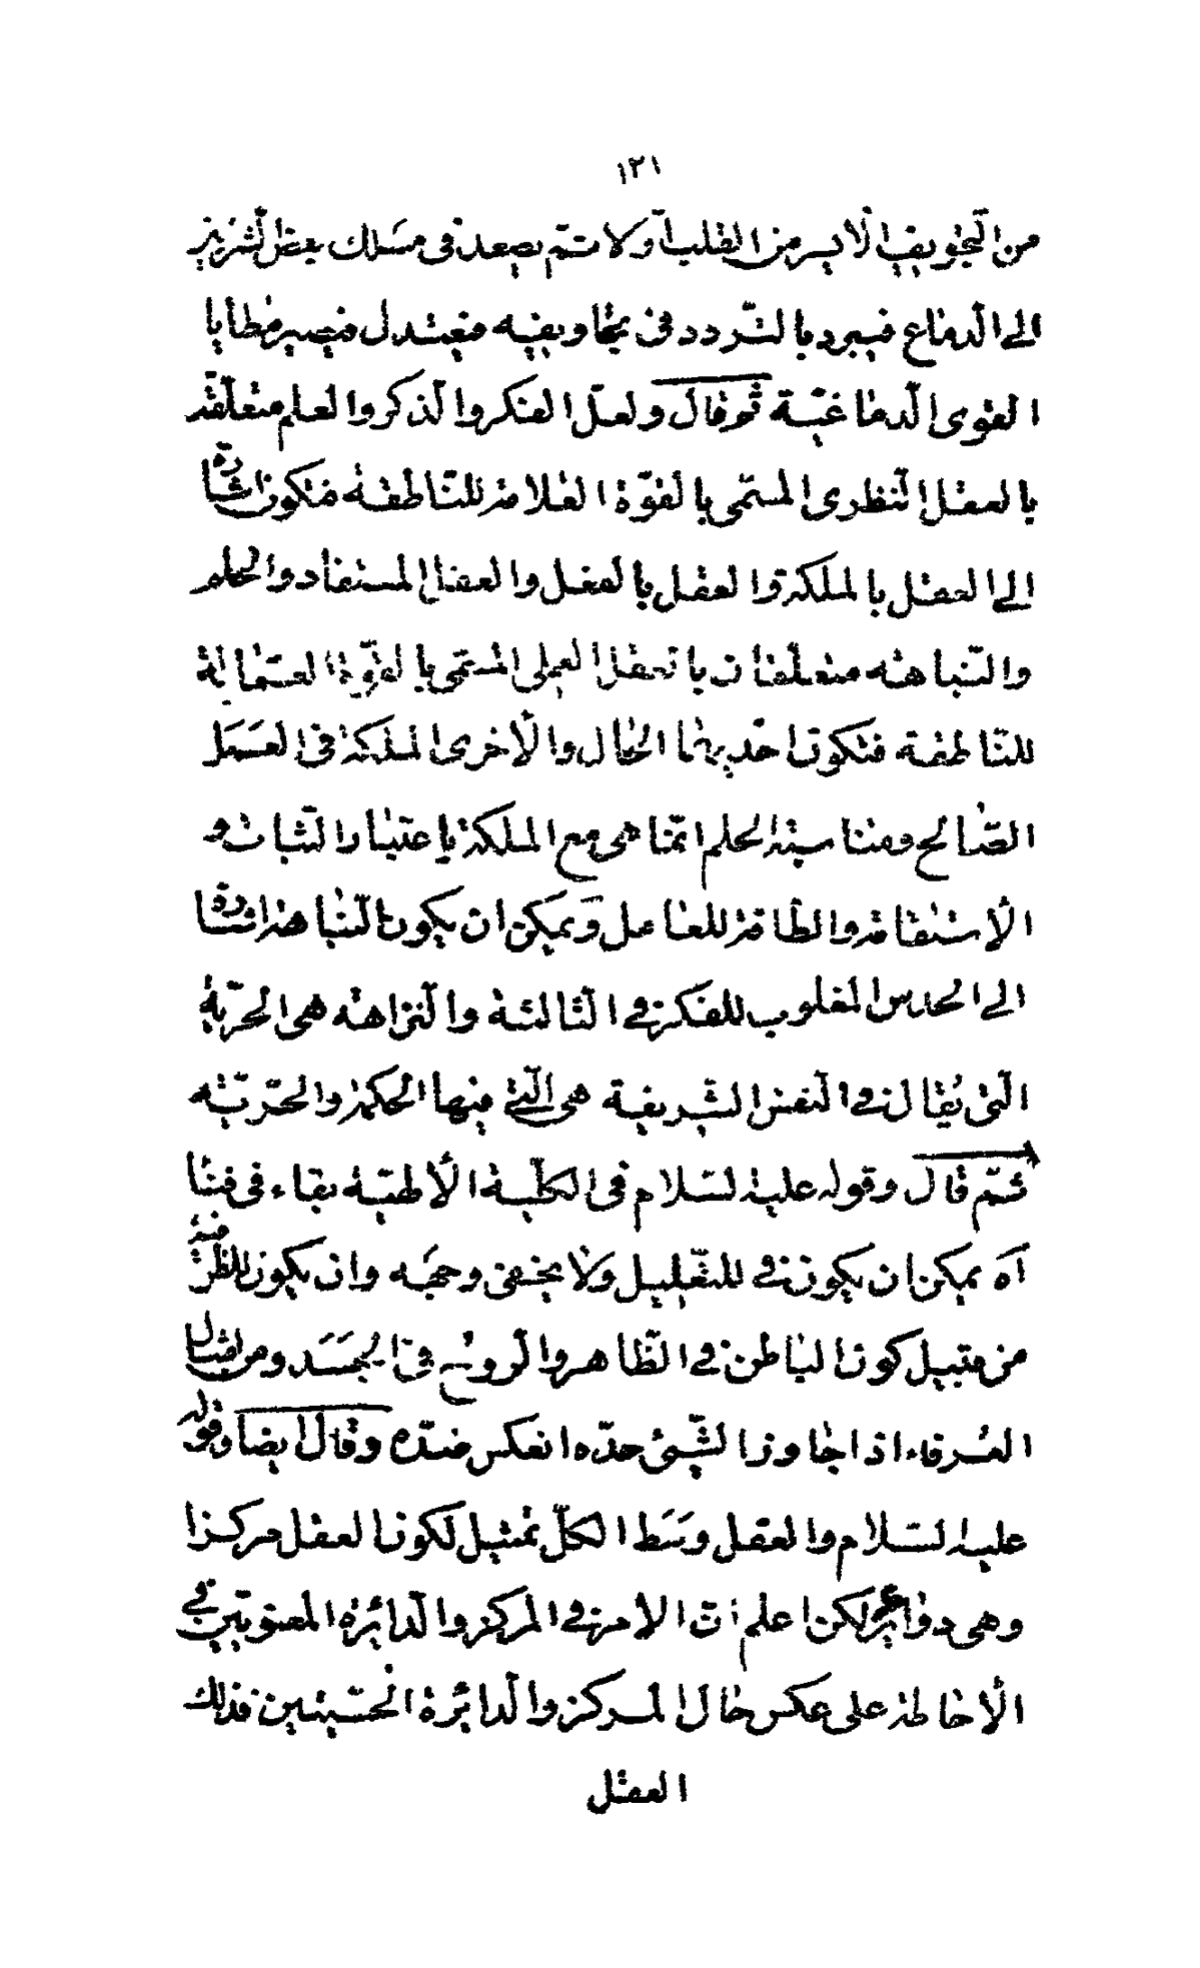 ١٢١
من التّجويف الأيسر من القلب أوّلا ثمّ يصعد فى مسلك بعض الشرايين
الى الدماغ فيبرد بالتّردد فى تجاويفه فيعتدل فيصير مطايا
القوى الدماغيّة ثم قال ولعلّ الفكر والذكر والعلم متعلّقة
بالعقل النظرى المسمّى بالقوّة العلامة للنّاطقة فتكون اشارة
الى العقل بالملكة والعقل بالفعل والعقل المستفاد والحلم
والنّباهة متعلّقان بالعقل العملى المسمّى بالقوّة العمّالة
للنّاطقة فتكون احديهما الحال والأخرى الملكة فى العمل
الصّالح ومناسبة الحلم انّما هى مع الملكة باعتبار الثّبات و
الاستقامة والطاقة للعامل ويمكن ان يكون النّباهة اشارة
الى الحدس المغلوب للفكر فى الثالثة والنزاهة هى الحريّة
الّتى يقال فى النفس الشّريفة هى الّتى فيها الحكمة والحرّيّة
ثمّ قال وقوله عليه السّلام فى الكلّيّة الالهيّة بقاء فى فناء
آه يمكن ان يكون فى للتعليل ولا يخفى وجهه وان يكون للظرفية
من قبيل كون الباطن فى الظّاهر والروح فى الجسد ومن امثال
العرفاء اذا جاوز الشّيئ حدّه انعكس ضدّه وقال ايضا وقوله
عليه السّلام والعقل وسط الكلّ تمثيل لكون العقل مركزا
وهى دوائر لكن اعلم انّ الأمر فى المركز والدائرة المعنويّين فى
الأحاطة على عكس حال المركز والدائرة الحسّيّتين فذلك
العقل